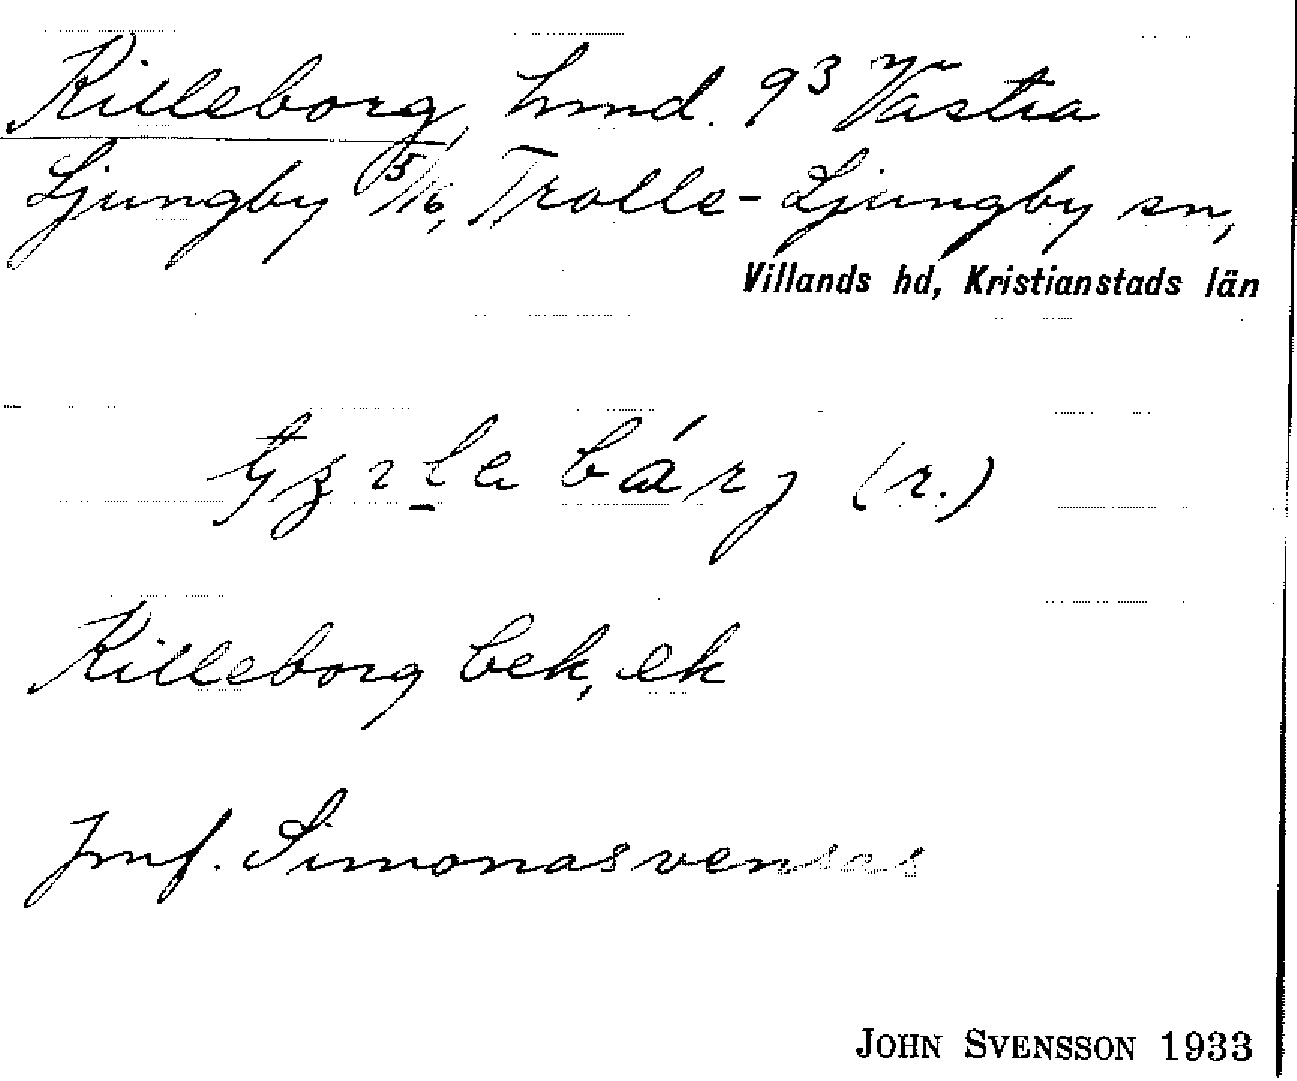 Killeborg, hmd. 9³ Västra
Ljungby 5/16, Trolle-Ljungby sn,
Villands hd, Kristianstads län
bárj (r.)
Killeborg bek, ek
Jmf. Simonasvensas
JOHN SVENSSON 1933